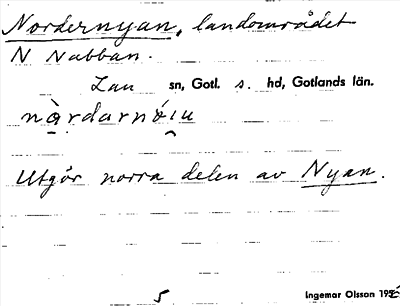 Nordernyan, landområdet
N Nabban.
Lau sn, Gotl. s. hd, Gotlands län.
Utgör norra delen av Nyan.
5
Ingemar Olsson